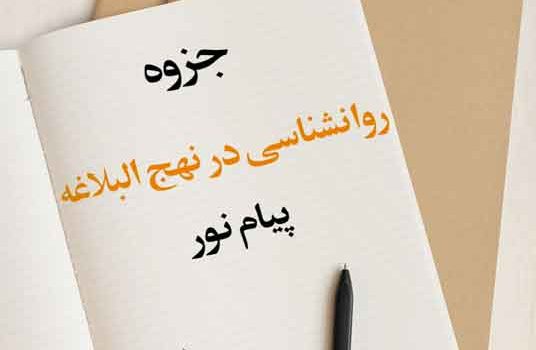 جزوه
روانشناسی در نهج البلاغه
پیام نور